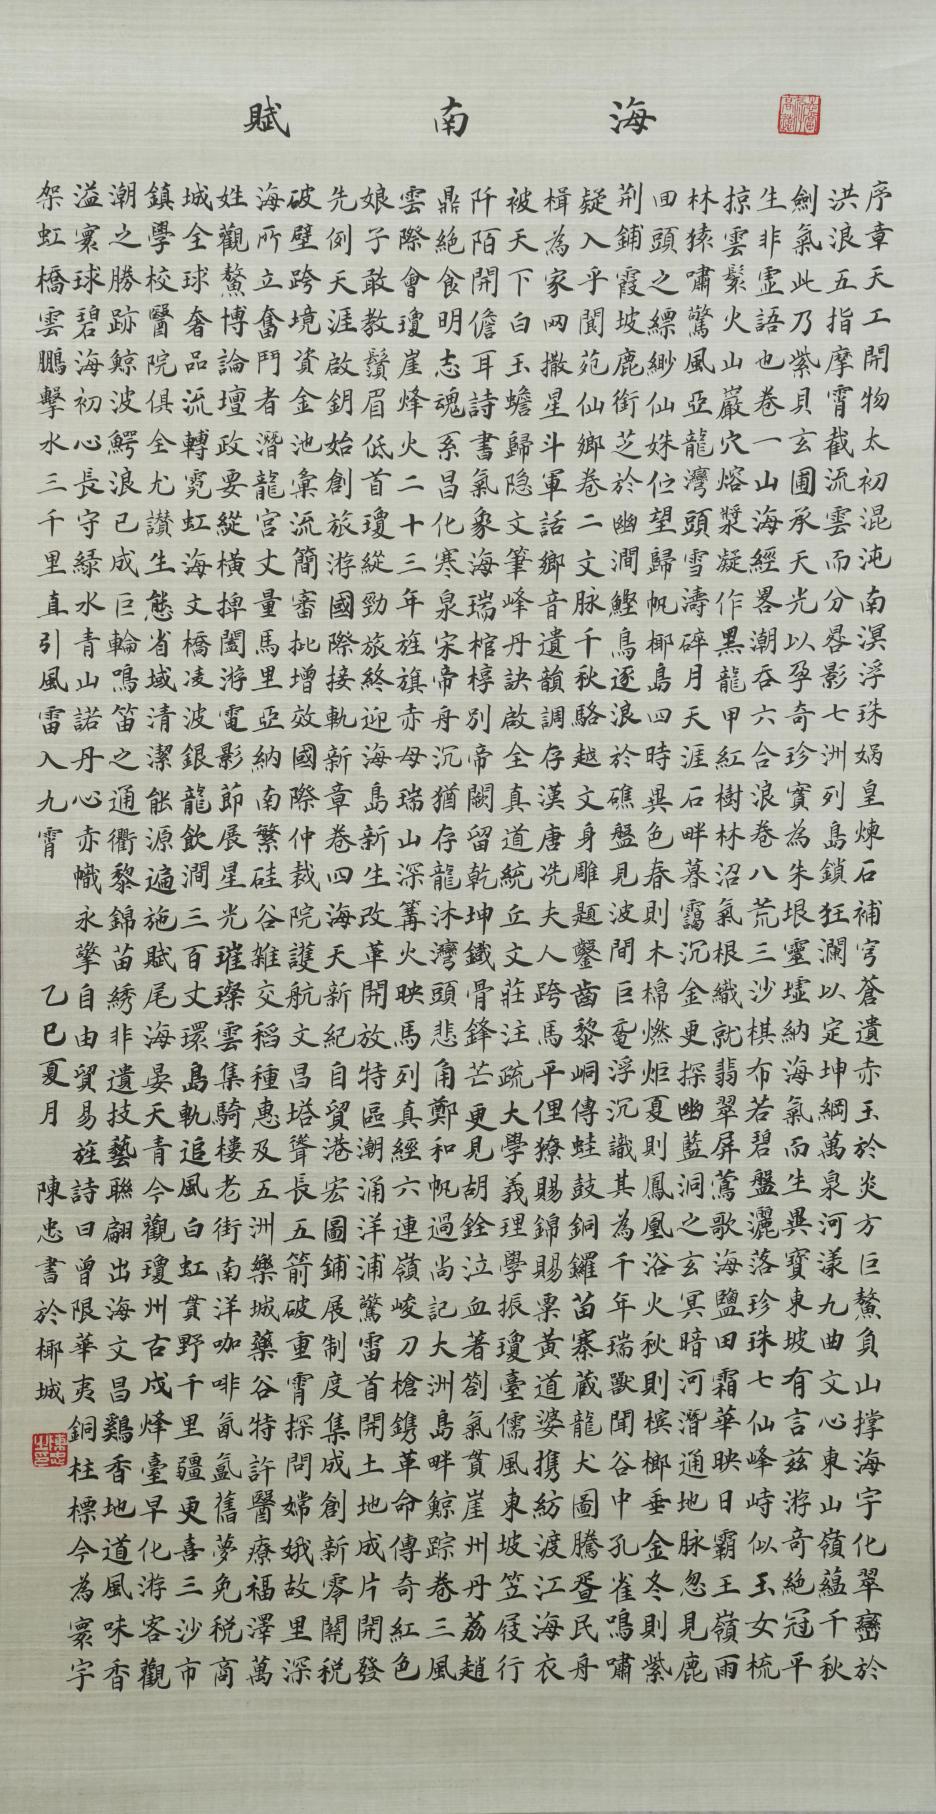 海南賦
序章天工開物太初混沌南溟浮珠媧皇煉石補穹蒼遺赤玉於炎方巨鰲負山撐海宇化翠巒於
洪浪五指摩霄截流雲而分晷影七洲列島鎖狂瀾以定坤綱萬泉河漾九曲文心東山嶺蘊千秋
劍氣此乃紫貝玄圃承天光以孕奇珍寶為朱垠靈墟納海氣而生異寶東坡有言茲游奇絕冠平
生非虛語也卷一山海經畧潮吞六合浪卷八荒三沙棋布若碧盤灑落珍珠七仙峰峙似玉女梳
掠雲鬢火山巖穴熔漿凝作黑龍甲紅樹林沼氣根織就翡翠屏鶯歌海鹽田霜華映日霸王嶺雨
林猿嘯驚風亞龍灣頭雪濤碎月天涯石畔暮靄沉金更探幽藍洞之玄冥暗河潛通地脈忽見鹿
回頭之縹緲仙姝佇望歸帆椰島四時異色春則木棉燃炬夏則鳳凰浴火秋則檳榔垂金冬則紫
荆鋪霞坡鹿銜芝於幽澗鰹鳥逐浪於礁盤見波間巨黿浮沉識其為千年瑞獸聞谷中孔雀鳴嘯
疑入乎閬苑仙鄉卷二文脉千秋駱越文身雕題鑿齒黎峒傳蛙鼓銅鑼苗寨藏龍犬圖騰疍民舟
楫為家网撒星斗軍話鄉音遺韻調存漢唐冼夫人跨馬平俚獠賜錦賜粟黃道婆携紡渡江海衣
被天下白玉蟾歸隐文筆峰丹訣啟全真道統丘文莊注疏大學義理學振瓊臺儒風東坡笠屐行
阡陌開儋耳詩書氣象海瑞棺椁別帝闕留乾坤鐵骨鋒芒更見胡銓泣血著劄氣貫崖州丹荔趙
鼎絕食明志魂系昌化寒泉宋帝舟沉猶存龍沐灣頭悲角鄭和帆過尚記大洲島畔鯨踪卷三風
雲際會瓊崖烽火二十三年旌旗赤母瑞山深篝火映馬列真經六連嶺峻刀槍鐫革命傳奇紅色
娘子敢教鬚眉低首瓊縱勁旅終迎海島新生改革開放特區潮涌洋浦驚雷首開土地成片開發
先例天涯啟鈅始創旅游國際接軌新章卷四海天新紀自貿港宏圖鋪展制度集成創新零關税
破壁跨境資金池彙流簡審批增效國際仲裁院護航文昌塔聳長五箭破重霄探問嫦娥故里深
海所立奮鬥者潛龍宮丈量馬里亞納南繁硅谷雜交稻種惠及五洲樂城藥谷特許醫療福澤萬
姓觀鰲博論壇政要縱橫捭闔游電影節展星光璀璨雲集騎樓老街南洋咖啡氤氳舊夢免税商
城全球奢品流轉霓虹海文橋凌波銀龍飲澗三百丈環島軌追風白虹貫野千里疆更喜三沙市
鎮學校醫院俱全尤讃生態省域清潔能源遍施賦尾海晏天青今觀瓊州古戍烽臺早化游客觀
潮之勝跡鯨波鰐浪已成巨輪鳴笛之通衢黎錦苗綉非遺技藝聯翩出海文昌鷄香地道風味香
溢寰球碧海初心長守緑水青山諾丹心赤幟永擎自由貿易旌詩曰曾限華夷銅柱標今為寰宇
架虹橋雲鵬擊水三千里直引風雷入九霄 乙巳夏月 陳忠書於椰城
陳忠之印